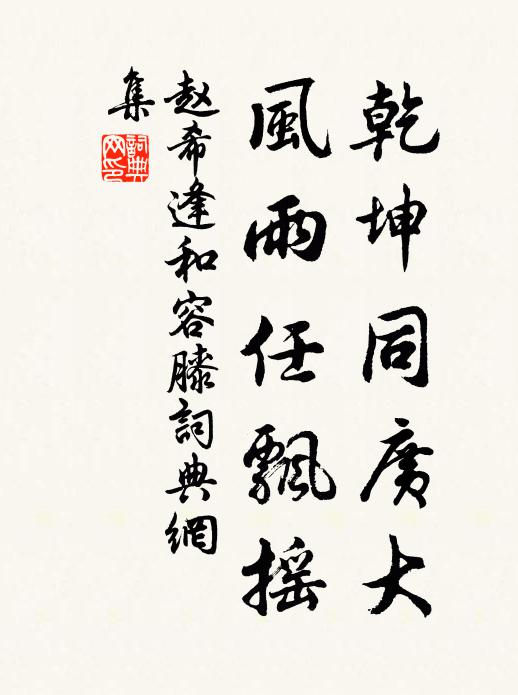 乾坤同廣大
風雨任飄摇
赵希逢和容膝詞典網
集
詞典網印